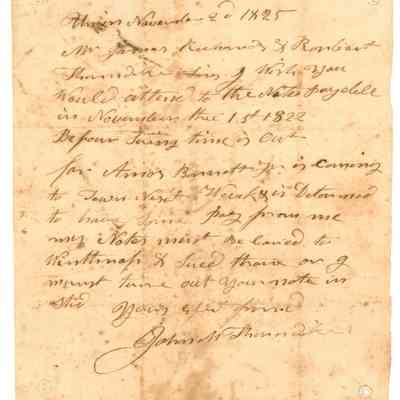 Union November 2d 1825
Mr James Richards & Robert
Sirs I Wish you
Would attend to the Notes payable
in November the 1st 1822
Before Suing time is Out
for Amos Bennett jr is Coming
to Town Next Week & is Determined
to have Some pay from me
my Notes must be
& Sued or I
must turn out your note in
Yours &c friend
John